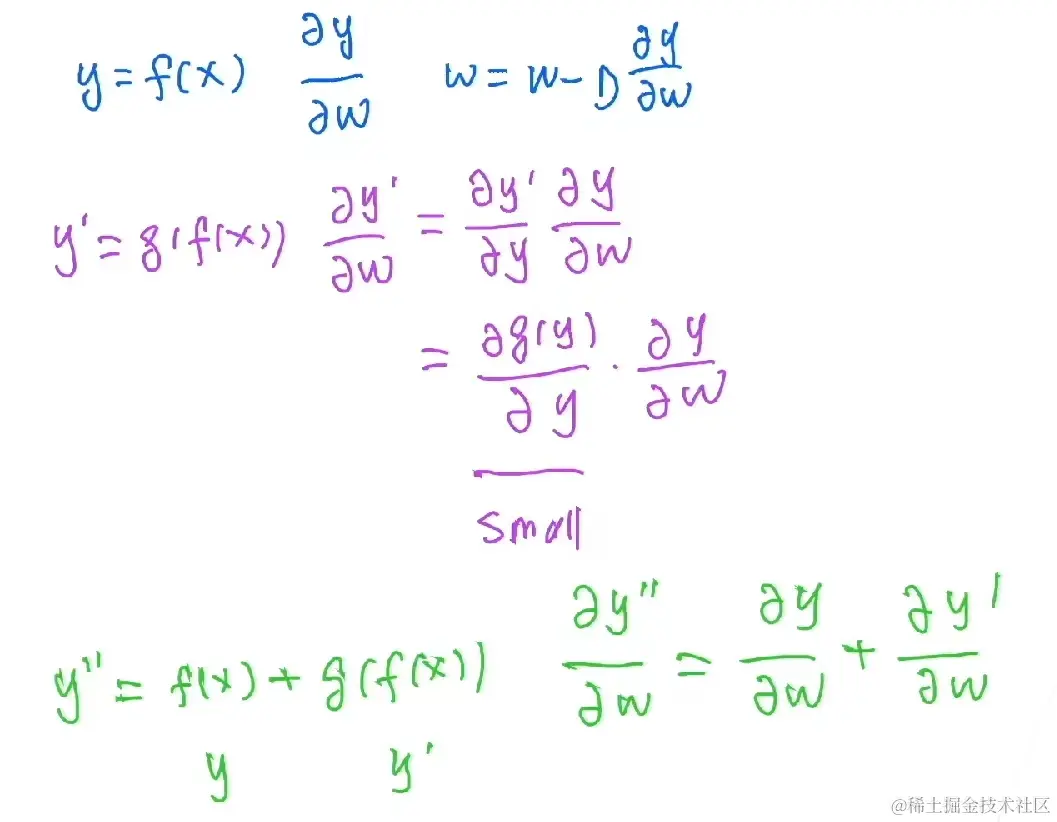 y = f(x)   ∂y/∂w   w = w - D ∂y/∂w
y' = g(f(x))   ∂y'/∂w = ∂y'/∂y ∂y/∂w
= ∂g(y)/∂y · ∂y/∂w
small
y'' = f(x) + g(f(x))   ∂y''/∂w = ∂y/∂w + ∂y'/∂w
y   y'
@稀土掘金技术社区